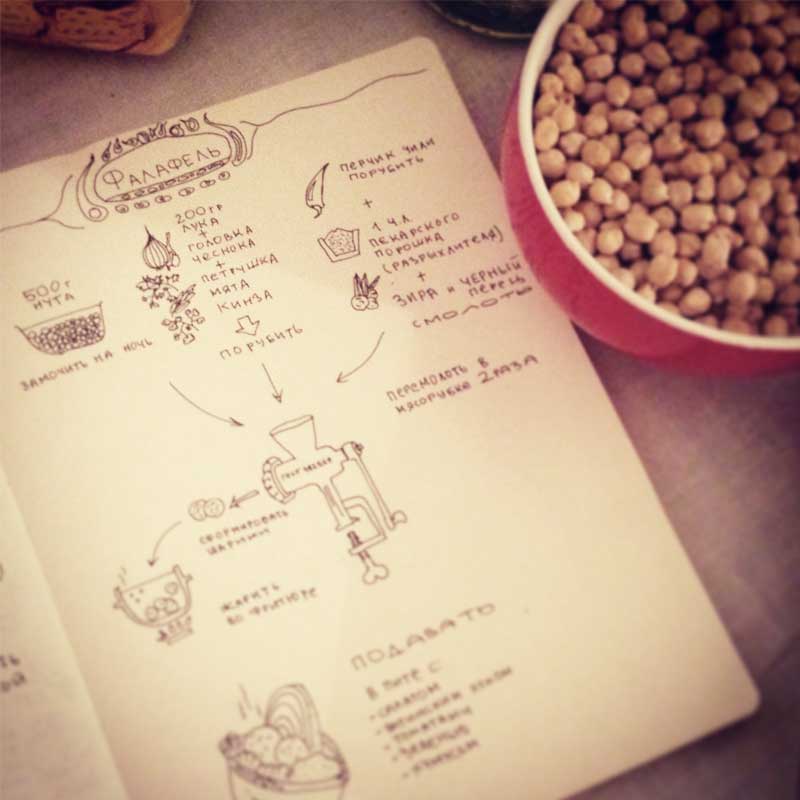 ФАЛАФЕЛЬ
500г
НУТА
ЗАМОЧИТЬ НА НОЧЬ
200гр
ЛУКА
+
ГОЛОВКА
ЧЕСНОКА
+
ПЕТРУШКА
МЯТА
КИНЗА
ПОРУБИТЬ
ПЕРЧИК ЧИЛИ
ПОРУБИТЬ
+
1 ч.л.
ПЕКАРСКОГО
ПОРОШКА
(РАЗРЫХЛИТЕЛЯ)
+
ЗИРА И ЧЕРНЫЙ
ПЕРЕЦ
СМОЛОТЬ
ПЕРЕМОЛОТЬ В
МЯСОРУБКЕ 2 РАЗА
СФОРМИРОВАТЬ
ШАРИКИ
ЖАРИТЬ
ВО ФРИТЮРЕ
ПОДАВАТЬ
В ПИТЕ С
- САЛАТОМ
- ТОМАТАМИ